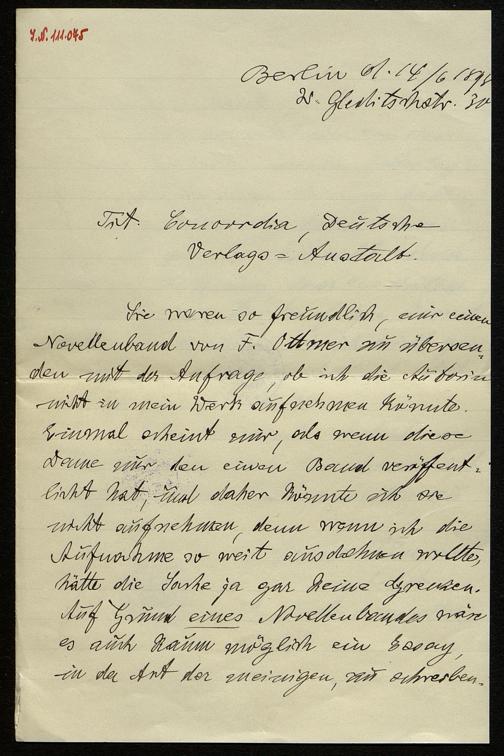 J.N. 111.045
Berlin d. 14/6 189
W. Gleditschstr. 30
Tit. Concordia, Deutsche
Verlags=Anstalt.
Sie waren so freundlich, mir einen
Novellenband von F. Ottmer zu übersen-
den mit der Anfrage, ob ich die Autorin
nicht in mein Werk aufnehmen könnte.
Einmal scheint mir, als wenn diese
Dame nur den einen Band veröffent-
licht hat, und daher könnte ich sie
nicht aufnehmen, denn wenn ich die
Aufnahme so weit ausdehnen wollte,
hätte die Sache ja gar keine Grenzen.
Auf Grund eines Novellenbandes wäre
es auch kaum möglich ein Essay,
in der Art der meinigen, zu schreiben.